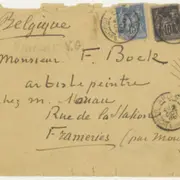 Belgique
Monsieur F. Bock
artiste peintre
chez M.
Rue de la Station
Frameries (par Mons